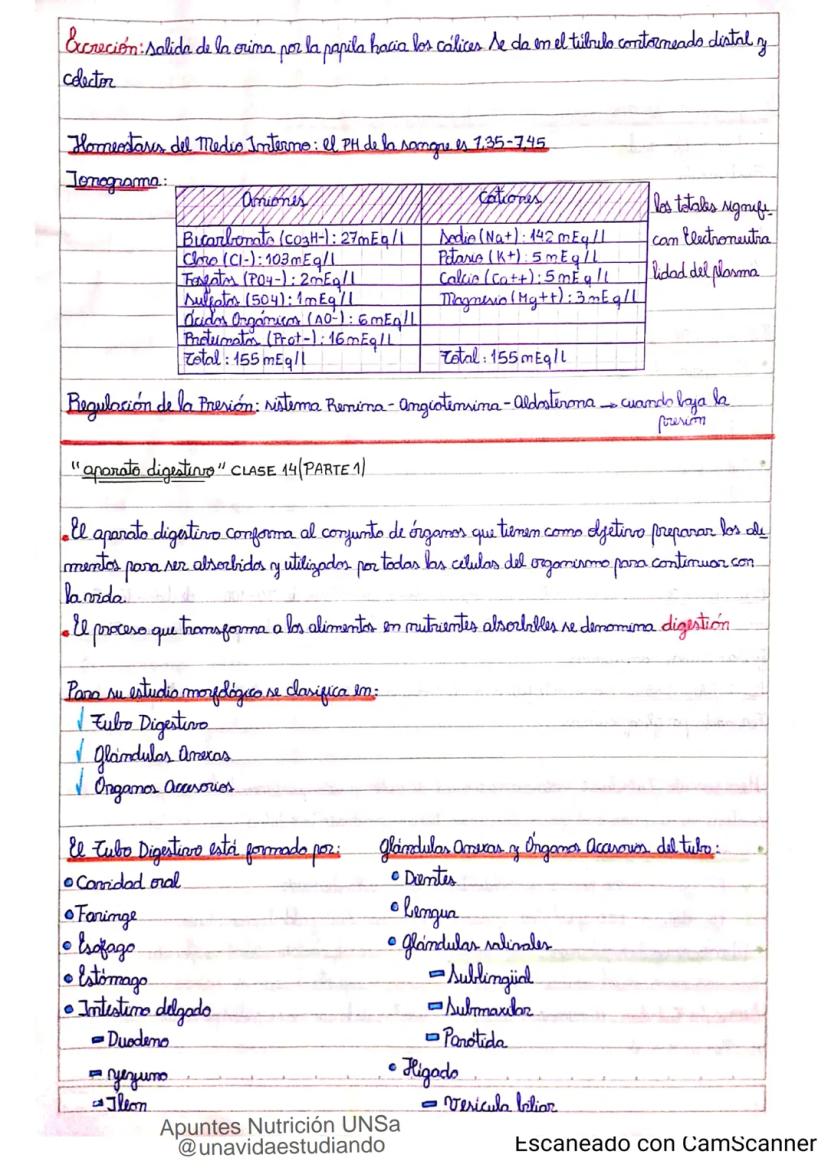 Excreción: salida de la orina por la papila hacia los cálices se da en el túbulo contorneado distal y
colector
Homeostasis del Medio Interno: el PH de la sangre es 7,35-7,45
Ionograma:
Aniones
Cationes
Bicarbonato (CO3H-): 27mEq/l
Sodio (Na+): 142 mEq/l
Cloro (Cl-): 103mEq/l
Potasio (K+): 5 mEq/l
Fosfatos (PO4-): 2mEq/l
Calcio (Ca++): 5mEq/l
Sulfatos (SO4): 1mEq/l
Magnesio (Mg++): 3mEq/l
Ácidos Orgánicos (AO-): 6mEq/l
Proteinatos (Prot-): 16mEq/l
Total: 155mEq/l
Total: 155mEq/l
los totales signifi-
can Electroneutra
lidad del plasma
Regulación de la Presión: sistema Renina - Angiotensina - Aldosterona → cuando baja la
presión
"aparato digestivo" CLASE 14 (PARTE 1)
• El aparato digestivo conforma al conjunto de órganos que tienen como objetivo preparar los ali
mentos para ser absorbidos y utilizados por todas las células del organismo para continuar con
la vida
• El proceso que transforma a los alimentos en nutrientes absorbibles se denomina digestión
Para su estudio morfológico se clasifica en:
✓ Tubo Digestivo
✓ Glándulas Anexas
✓ Órganos Accesorios
El Tubo Digestivo está formado por:
• Cavidad oral
• Faringe
• Esófago
• Estómago
• Intestino delgado
- Duodeno
- yeyuno
- Íleon
Glándulas Anexas y Órganos Accesorios del tubo:
• Dientes
• Lengua
• Glándulas salivales
- Sublingüal
- Submaxilar
- Parótida
• Hígado
- Vesícula biliar
Apuntes Nutrición UNSa
@unavidaestudiando
Escaneado con CamScanner